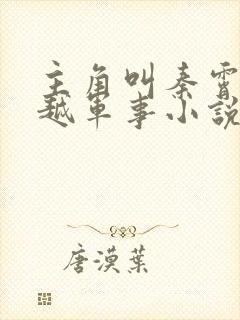 主角叫秦霄
越軍事小說
唐漠葉